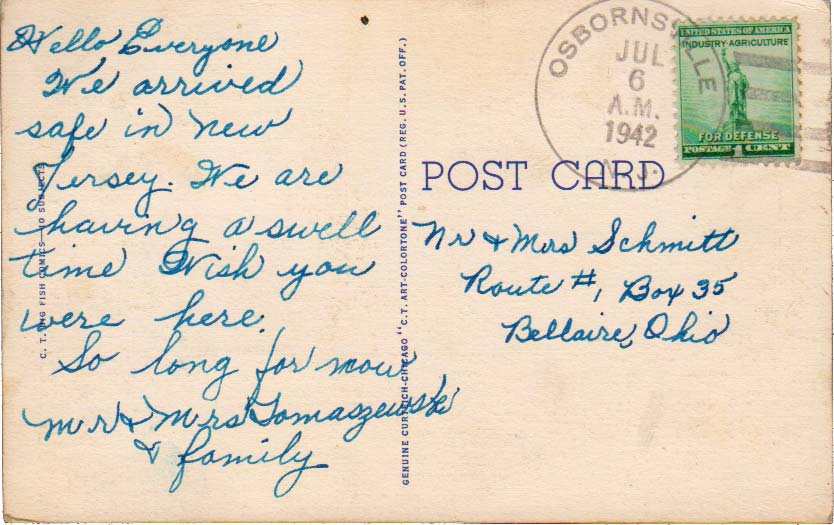 Hello Everyone
We arrived
safe in New
Jersey. We are
having a swell
time Wish you
were here.
So long for now
Mr & Mrs Tomaszewski
& family
C. T. BIG FISH COMICS—10 SUBJECTS
GENUINE CURTEICH-CHICAGO "C.T. ART-COLORTONE" POST CARD (REG. U.S. PAT. OFF.)
POST CARD
OSBORNSVILLE
JUL
6
A.M.
1942
N.J.
UNITED STATES OF AMERICA
INDUSTRY·AGRICULTURE
FOR DEFENSE
POSTAGE 1 CENT
Mr & Mrs Schmitt
Route #1 Box 35
Bellaire, Ohio